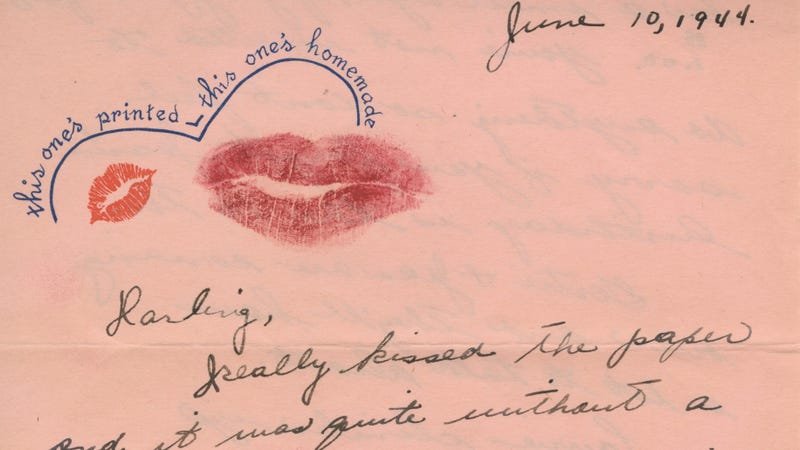 June 10, 1944.
this one's printed
this one's homemade
Darling,
I really kissed the paper
and it was quite without a